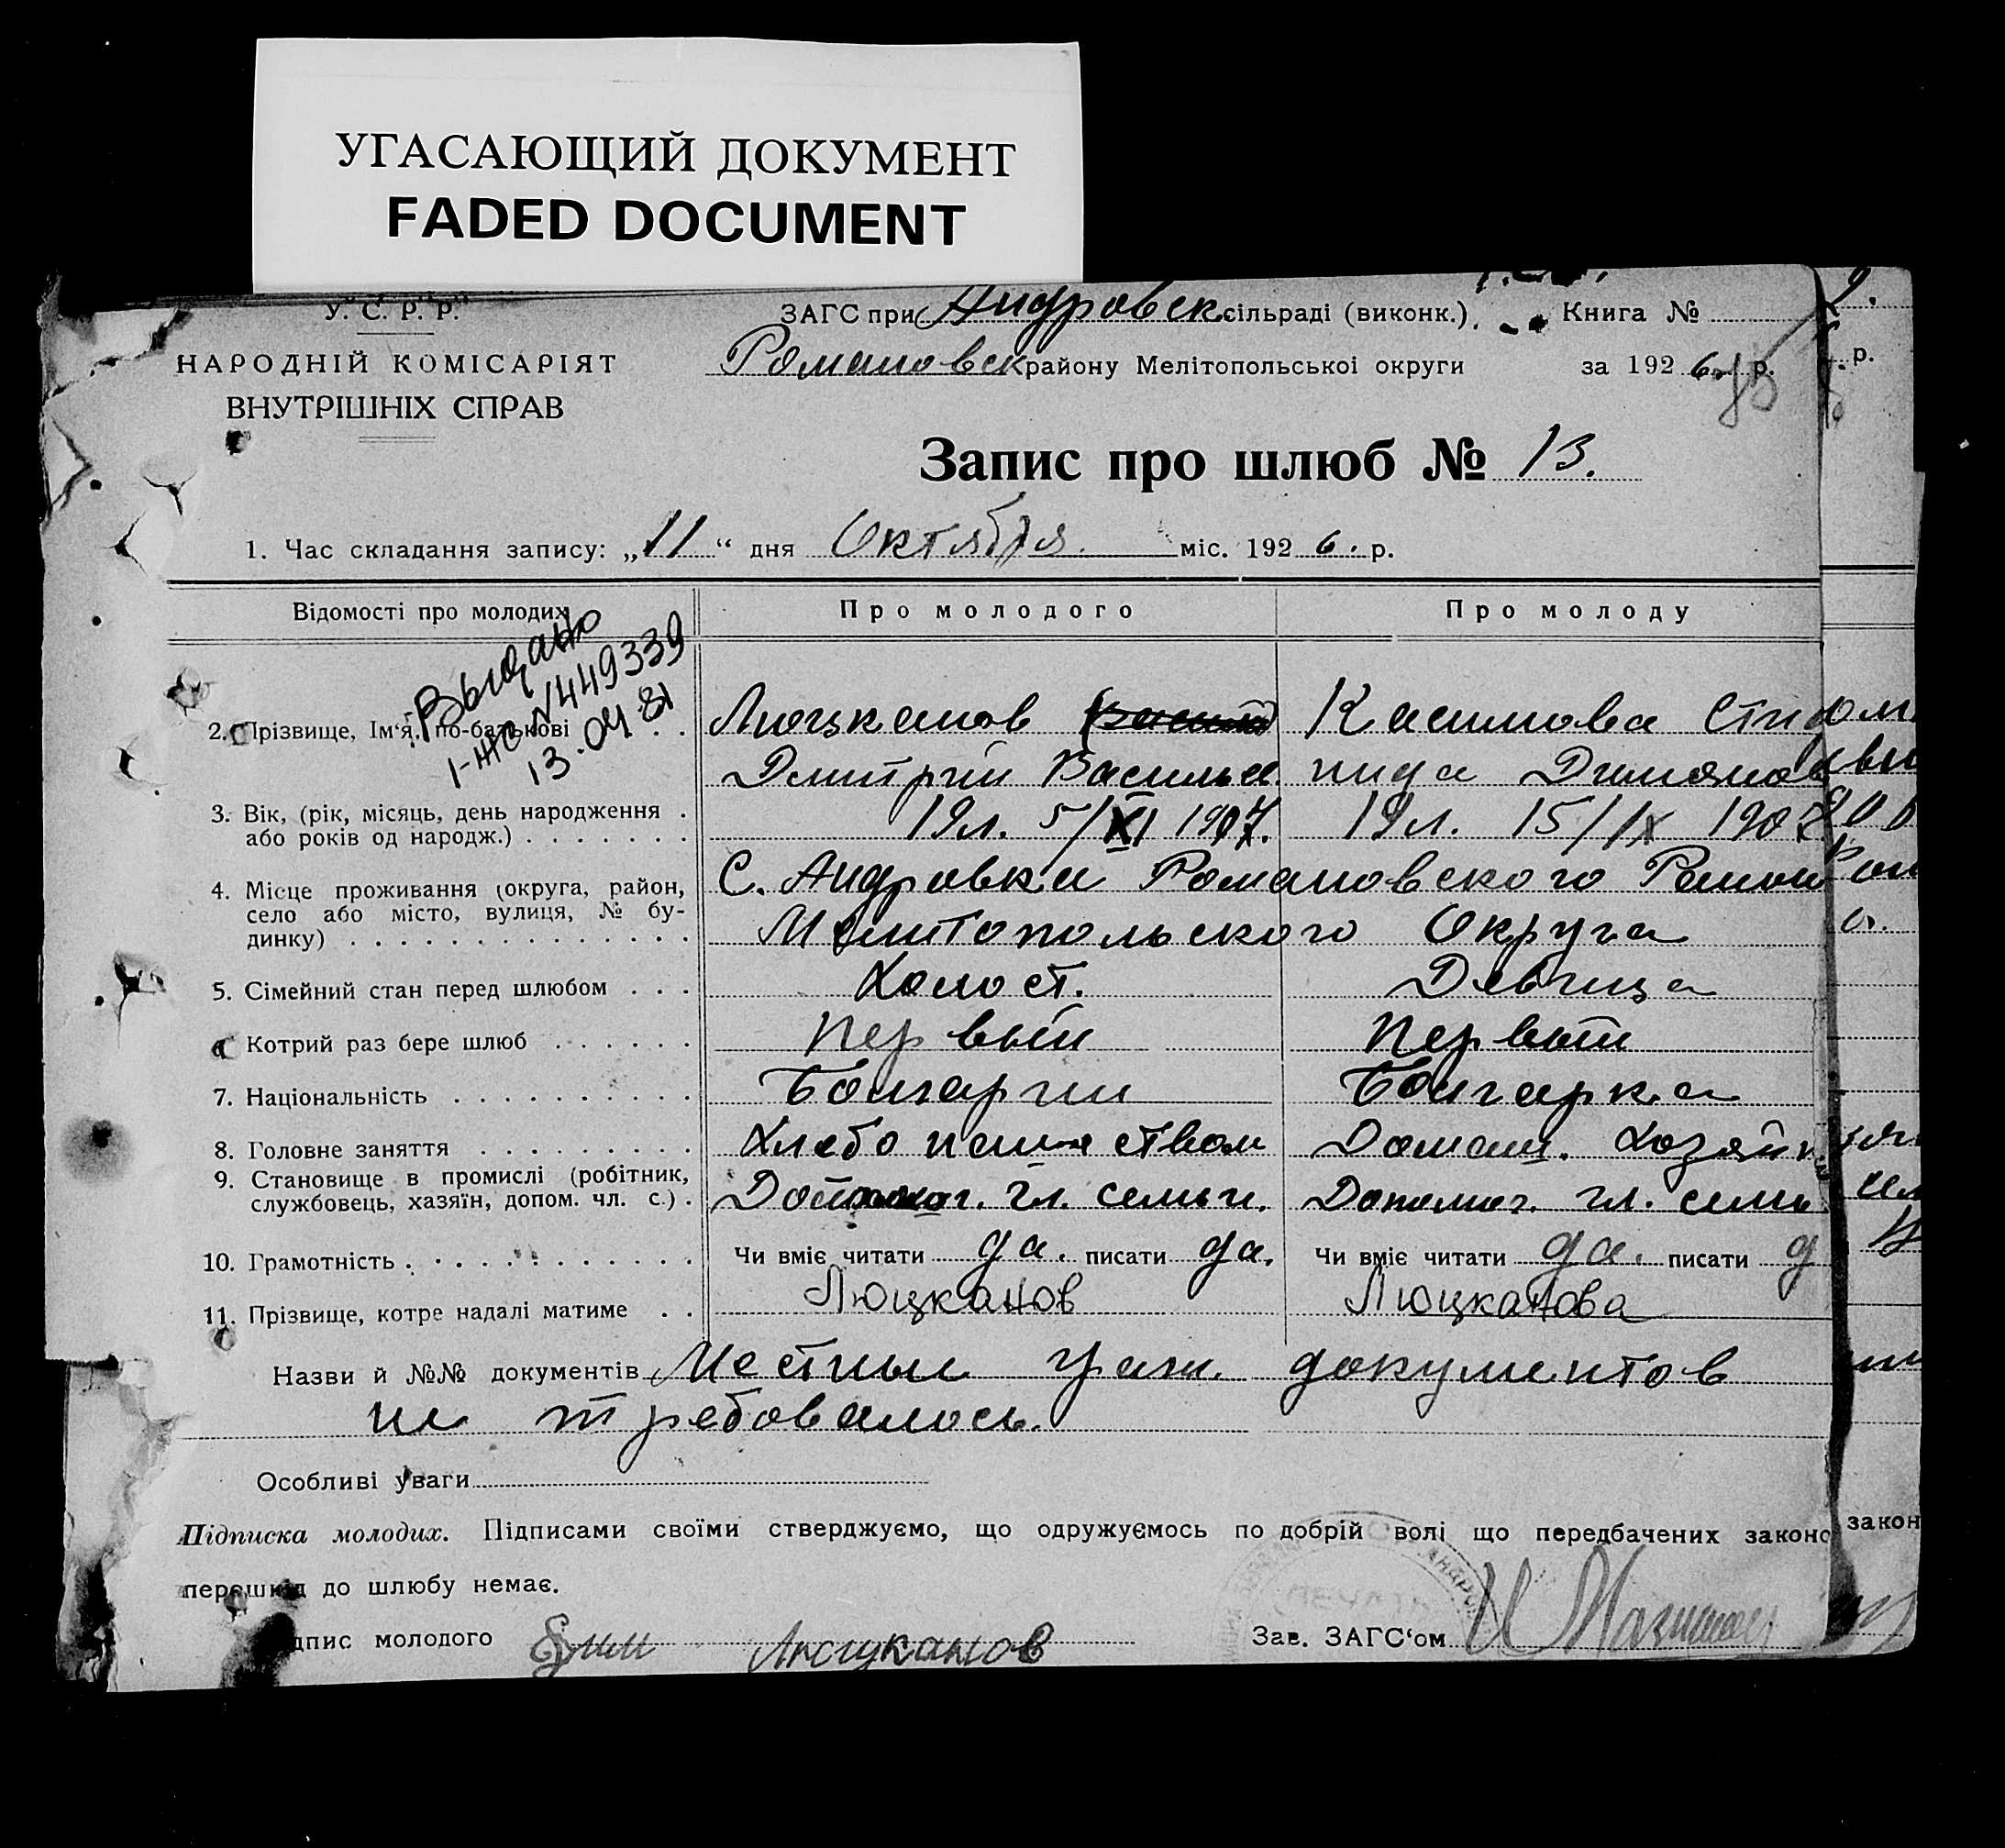 УГАСАЮЩИЙ ДОКУМЕНТ
FADED DOCUMENT
У. С. Р. Р.
НАРОДНІЙ КОМІСАРІЯТ
ВНУТРІШНІХ СПРАВ
ЗАГС при Андровск сільраді (виконк.) Книга №
Романовск району Мелітопольської округи за 1926 р.
р.
Запис про шлюб № 13.
1. Час складання запису: „11“ дня Октября міс. 1926. р.
Відомості про молодих Про молодого Про молоду
Выдано
I-ЖС №449339
13.04.81
2. Прізвище, Ім‘я, по-батькові . . Люцканов Касимова Сти
Дмитрий Василье. нида Димянов
3. Вік, (рік, місяць, день народження . 19л. 5/XI 1907. 19л. 15/IX 1907
або років од народж.) . . . . . . .
4. Місце проживання (округа, район, С. Андровка Романовского Район
село або місто, вулиця, № бу-
динку) . . . . . . . . . . . . . . Мелитопольского Округа
5. Сімейний стан перед шлюбом . . . Холост. Девица
Котрий раз бере шлюб . . . . . . Первый Первый
7. Національність . . . . . . . . . . Болгарин Болгарка
8. Головне заняття . . . . . . . . . Хлебопашеством Домаш. Хозяйк
9. Становище в промислі (робітник,
службовець, хазяїн, допом. чл. с.) . чл. семьи. Допомог. чл. семь
10. Грамотність . . . . . . . . . . . . Чи вміє читати да. писати да. Чи вміє читати да. писати д
11. Прізвище, котре надалі матиме . . Люцканов Люцканова
Назви й №№ документів Местные граж. документов
не требовалось.
Особливі уваги
Підписка молодих. Підписами своїми стверджуємо, що одружуємось по добрій волі що передбачених законо
закон
перешкод до шлюбу немає.
дпис молодого Люцканов Зав. ЗАГС‘ом